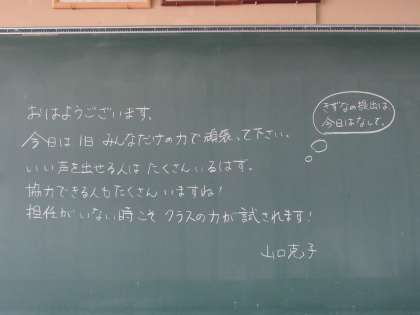 おはようございます。
今日は1日 みんなだけの力で頑張って下さい。
いい声を出せる人は たくさんいるはず。
協力できる人もたくさんいますね!
担任がいない時こそ クラスの力が試されます!
山口克子
きずなの提出は
今日はなしで。